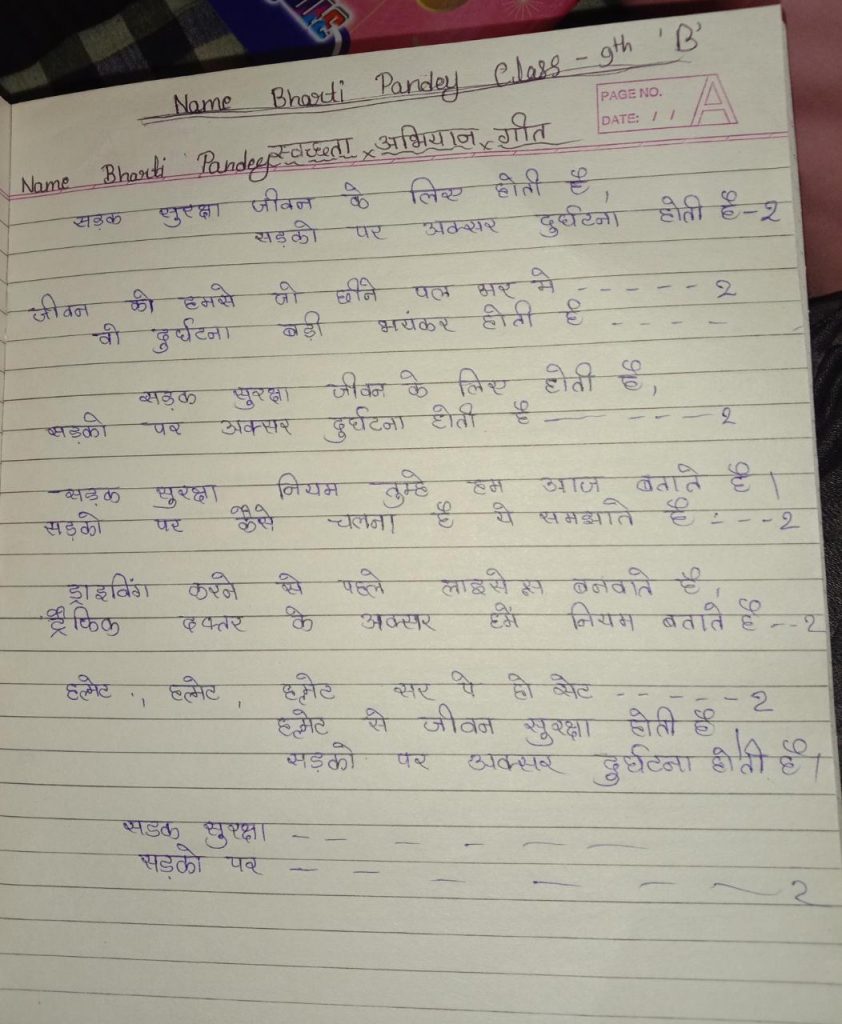 Name Bharti Pandey Class - 9th 'B'
PAGE NO.
DATE: / /
A
Name Bharti Pandey स्वच्छता x अभियान x गीत
सड़क सुरक्षा जीवन के लिए होती है,
सड़को पर अक्सर दुर्घटना होती है - 2
जीवन को हमसे जो छीने पल भर मे - - - - - - 2
वो दुर्घटना बड़ी भयंकर होती है - - - -
सड़क सुरक्षा जीवन के लिए होती है,
सड़को पर अक्सर दुर्घटना होती है - - - - 2
- सड़क सुरक्षा नियम तुम्हे हम आज बताते है।
सड़को पर कैसे चलना है ये समझाते है : - - 2
ड्राइविंग करने से पहले लाइसेंस बनवाते है,
ट्रैफिक दफ्तर के अक्सर हमें नियम बताते है - - 2
हल्मेट ., हल्मेट, हल्मेट सर पे हो सेट - - - - - - 2
हल्मेट से जीवन सुरक्षा होती है।
सड़को पर अक्सर दुर्घटना होती है।
सडक सुरक्षा - - - - - -
सड़को पर - - - - - - 2